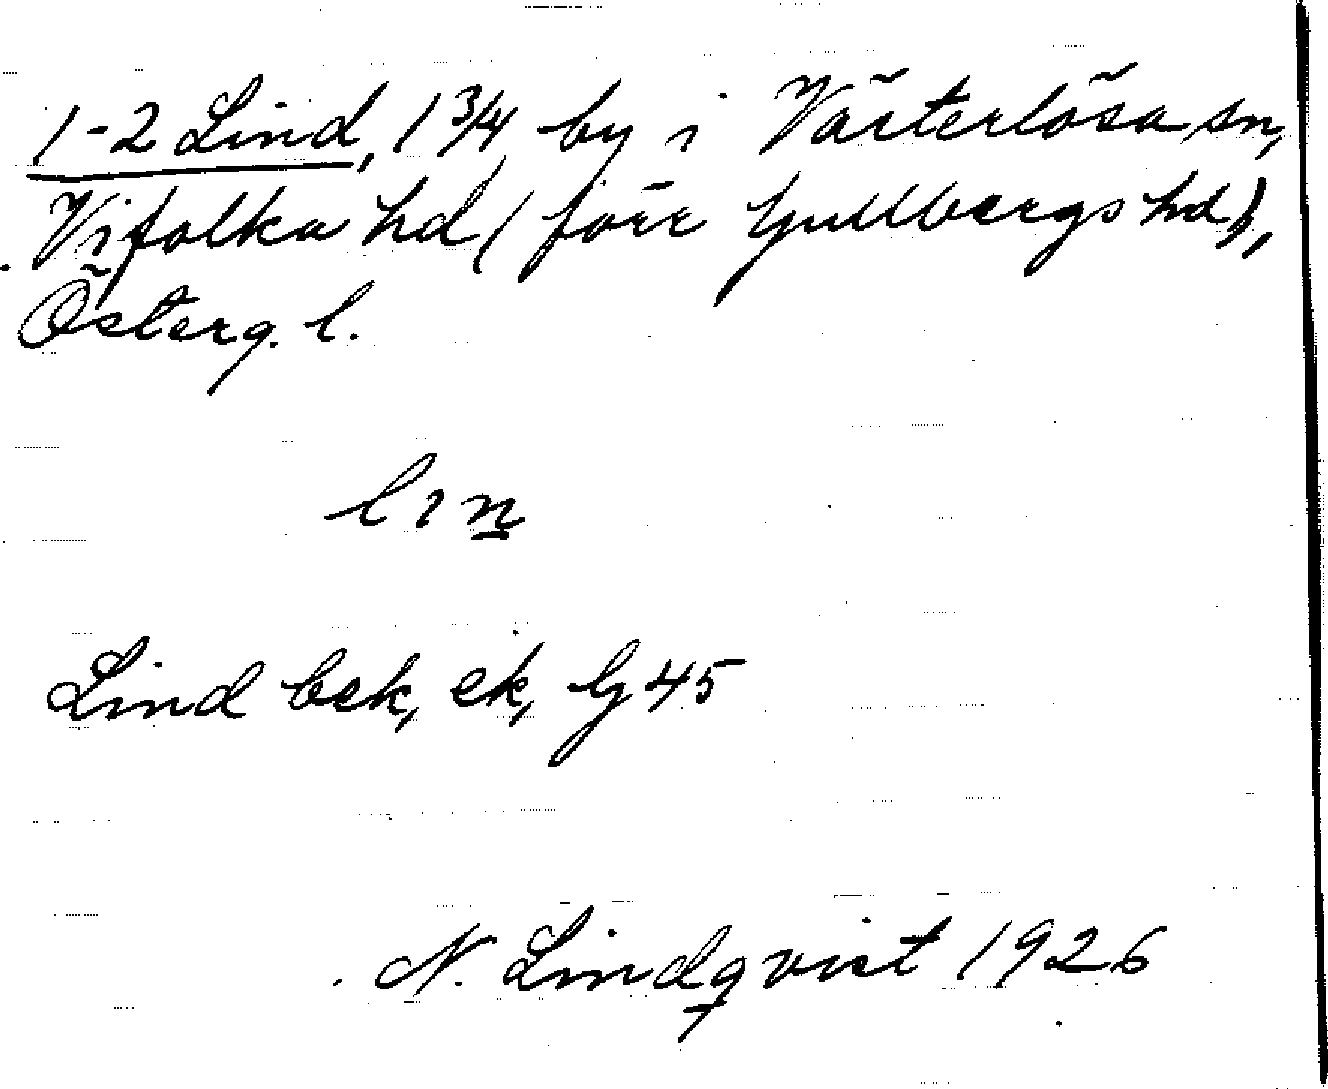 1-2 Lind, 1 3/4 by i Västerlösa sn,
Vifolka hd (förr Gullbergs hd),
Österg. l.
lin
Lind bek, ek, G 45
N. Lindqvist 1926